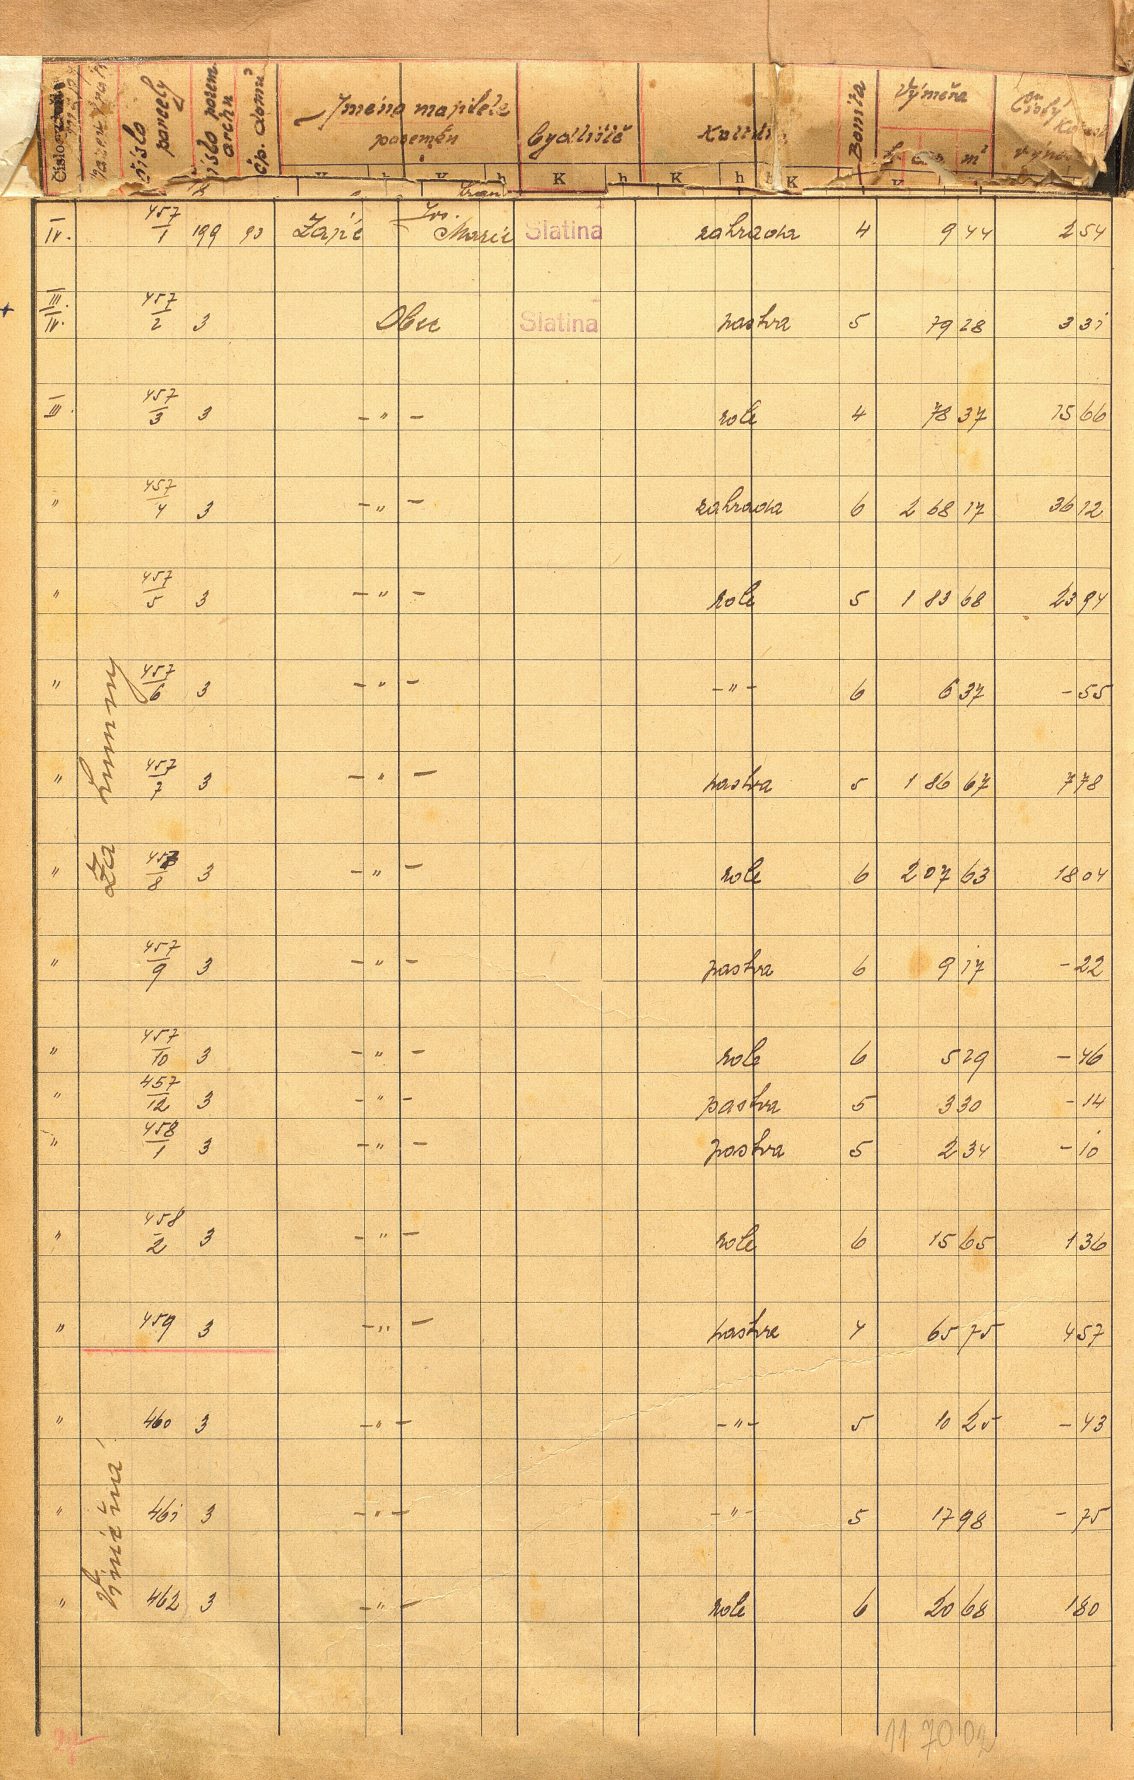 číslo parcely
číslo pozem. archu
čp. domů
Jméno majitele pozemku
Bydliště
Kultura
Bonita
Výměra
h a m²
Čistý
K h K h K h K h h K
IV. 457/1 199 93 Marie Slatina zahrada 4 9 44 2 54
III. IV. 457/2 3 Obec Slatina pastva 5 79 28 3 31
III. 457/3 3 – " – role 4 78 37 15 66
" 457/4 3 – " – zahrada 6 2 68 17 36 12
" 457/5 3 – " – role 5 1 83 68 23 94
" 457/6 3 – " – – " – 6 6 37 – 55
" 457/7 3 – " – pastva 5 1 86 67 7 78
" 457/8 3 – " – role 6 2 07 63 18 04
" 457/9 3 – " – pastva 6 9 17 – 22
" 457/10 3 – " – role 6 5 29 – 46
" 457/12 3 – " – pastva 5 3 30 – 14
" 458/1 3 – " – pastva 5 2 34 – 10
" 458/2 3 – " – role 6 15 65 1 36
" 459 3 – " – pastva 4 65 75 4 57
" 460 3 – " – – " – 5 10 25 – 43
" 461 3 – " – – " – 5 17 98 – 75
" 462 3 – " – role 6 20 68 1 80
Za humny
11 70 02